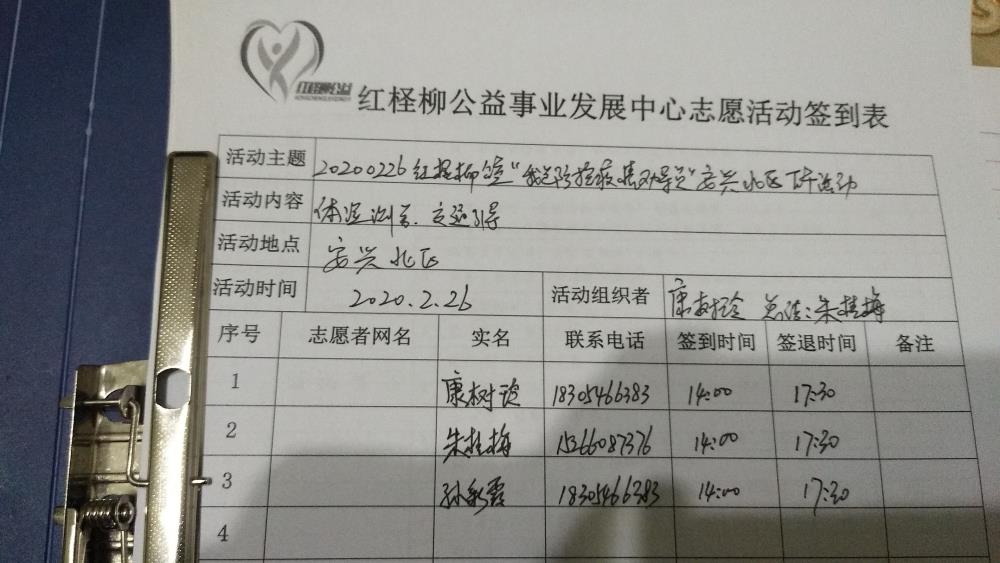 红柽柳公益
红柽柳公益事业发展中心志愿活动签到表
活动主题 20200226红柽柳公益"我是防控疫情劝导员"安兴北区下午活动
活动内容 体温测量、交通引导
活动地点 安兴北区
活动时间 2020.2.26 活动组织者 康树玲 总结:朱桂梅
序号 志愿者网名 实名 联系电话 签到时间 签退时间 备注
1 康树玲 18305466383 14:00 17:30
2 朱桂梅 15266087376 14:00 17:30
3 孙彩霞 18305466383 14:00 17:30
4